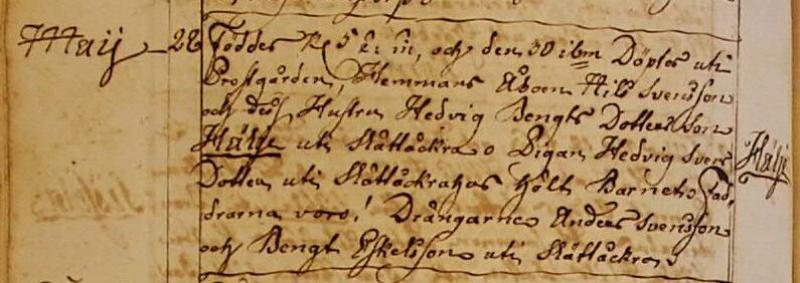 Maij 28 Föddes Kl 5 e: m, och den 30 ibm Döptes uti
Prostgården, Hemmans Åboen Nils Svensson
och dess Hustru Hedvig Bengts Dotters Son
Håkan uti Slättåckra Pigan Hedvig Svens
Dotter uti Slättåckra hölt Barnet Fad-
drarna voro: Drängarne Anders Svensson
och Bengt Eskelsson uti Slättåckra